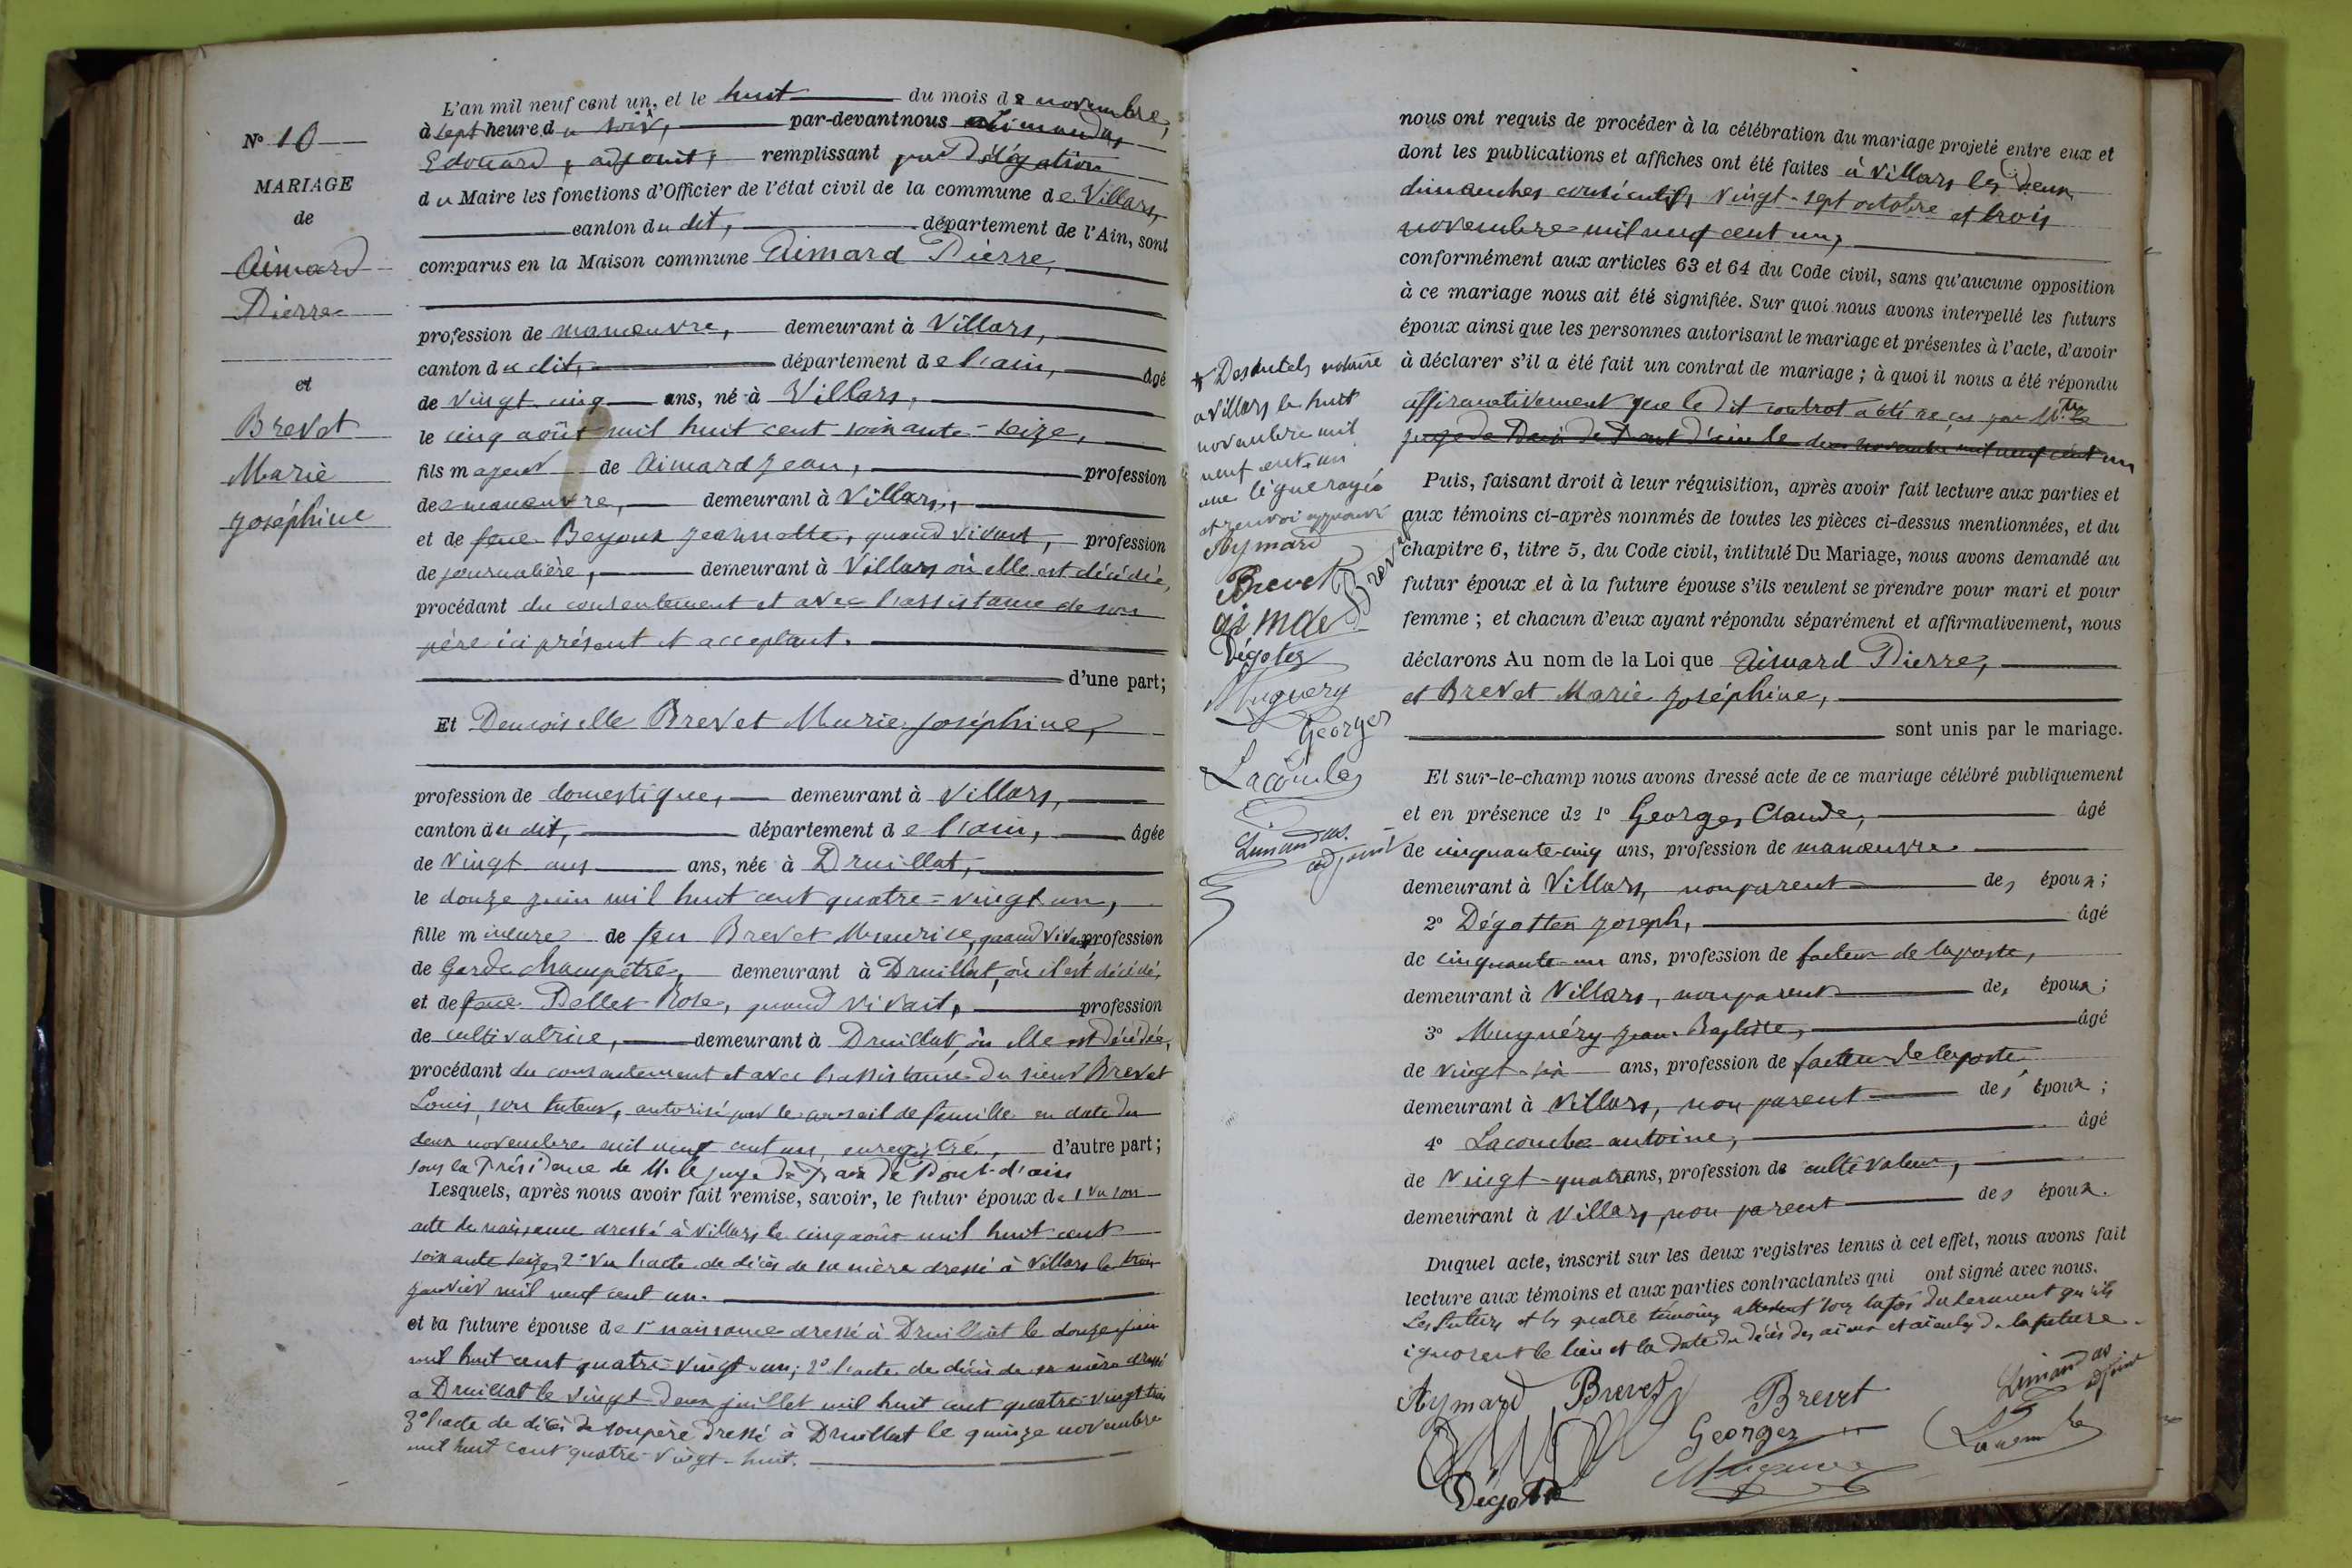 N° 10
MARIAGE
de
Aimard
Pierre
et
Brevet
Marie
Joséphine
L'an mil neuf cent un, et le huit du mois de novembre,
à sept heure du soir, par-devant nous Limandas
Edouard, adjoint, remplissant par Délégation
du Maire les fonctions d'Officier de l'état civil de la commune de Villars,
canton du dit, département de l'Ain, sont
comparus en la Maison commune Aimard Pierre,
profession de manœuvre, demeurant à Villars,
canton du dit, département de l'ain, âgé
de vingt-cinq ans, né à Villars,
le cinq août mil huit cent soixante-seize,
fils majeur de Aimard Jean, profession
de manœuvre, demeurant à Villars,
et de feue Beyoux Jeannette, quand vivait, profession
de journalière, demeurant à Villars où elle est décédée,
procédant du consentement et avec l'assistance de son
père ici présent et acceptant.
d'une part;
Et Demoiselle Brevet Marie Joséphine,
profession de domestique, demeurant à Villars,
canton du dit, département de l'ain, âgée
de vingt ans ans, née à Druillat,
le douze juin mil huit cent quatre-vingt-un,
fille mineure de feu Brevet Maurice, quand vivait profession
de Garde champêtre, demeurant à Druillat, où il est décédé,
et de feue Pellet Rose, quand vivait, profession
de cultivatrice, demeurant à Druillat, où elle est décédée,
procédant du consentement et avec l'assistance du sieur Brevet
Louis, son tuteur, autorisé par le conseil de famille en date du
deux novembre mil neuf cent un, enregistré, d'autre part;
sous la Présidence de M. le juge de Paix de Pont-d'ain
Lesquels, après nous avoir fait remise, savoir, le futur époux de 1° vu son
acte de naissance dressé à Villars le cinq août mil huit cent
soixante seize, 2° Vu l'acte de décès de sa mère dressé à Villars le trois
janvier mil neuf cent un.
et la future épouse de 1° naissance dressé à Druillat le douze juin
mil huit cent quatre-vingt-un; 2° l'acte de décès de sa mère dressé
à Druillat le vingt-deux juillet mil huit cent quatre-vingt trois
3° l'acte de décès de son père dressé à Druillat le quinze novembre
mil huit cent quatre-vingt-huit.
nous ont requis de procéder à la célébration du mariage projeté entre eux et
dont les publications et affiches ont été faites à Villars les deux
dimanches consécutifs, vingt-sept octobre et trois
novembre mil neuf cent un,
conformément aux articles 63 et 64 du Code civil, sans qu'aucune opposition
à ce mariage nous ait été signifiée. Sur quoi nous avons interpellé les futurs
époux ainsi que les personnes autorisant le mariage et présentes à l'acte, d'avoir
à déclarer s'il a été fait un contrat de mariage; à quoi il nous a été répondu
affirmativement que le dit contrat a été reçu par Mtre
juge de Paix de Pont d'ain le deux novembre mil neuf cent un
Puis, faisant droit à leur réquisition, après avoir fait lecture aux parties et
aux témoins ci-après nommés de toutes les pièces ci-dessus mentionnées, et du
chapitre 6, titre 5, du Code civil, intitulé Du Mariage, nous avons demandé au
futur époux et à la future épouse s'ils veulent se prendre pour mari et pour
femme; et chacun d'eux ayant répondu séparément et affirmativement, nous
déclarons Au nom de la Loi que Aimard Pierre,
et Brevet Marie Joséphine,
sont unis par le mariage.
Et sur-le-champ nous avons dressé acte de ce mariage célébré publiquement
et en présence de 1° Georges Claude, âgé
de cinquante-cinq ans, profession de manœuvre
demeurant à Villars, non parent des époux;
2° Dégottex Joseph, âgé
de cinquante-un ans, profession de facteur de la poste,
demeurant à Villars, non parent des époux;
3° Muguéry Jean Baptiste, âgé
de vingt-six ans, profession de facteur de la poste
demeurant à Villars, non parent des époux;
4° Lacombe antoine, âgé
de vingt-quatre ans, profession de cultivateur,
demeurant à Villars, non parent des époux.
Duquel acte, inscrit sur les deux registres tenus à cet effet, nous avons fait
lecture aux témoins et aux parties contractantes qui ont signé avec nous.
Les futurs et les quatre témoins attestent sous la foi du serment qu'ils
ignorent le lieu et la date du décès des aïeux et aïeules de la future.
Aymard Brevet Brevet Limandas adjoint
Georges Lacombe
Muguery
Dégottex
* Desautels notaire
à Villars le huit
novembre mil
neuf cent un
une ligne rayée
et renvoi approuvé
Aymard
Brevet Brevet
aimar
Dégotex
Muguery
Georges
Lacombe
Limandas
adjoint